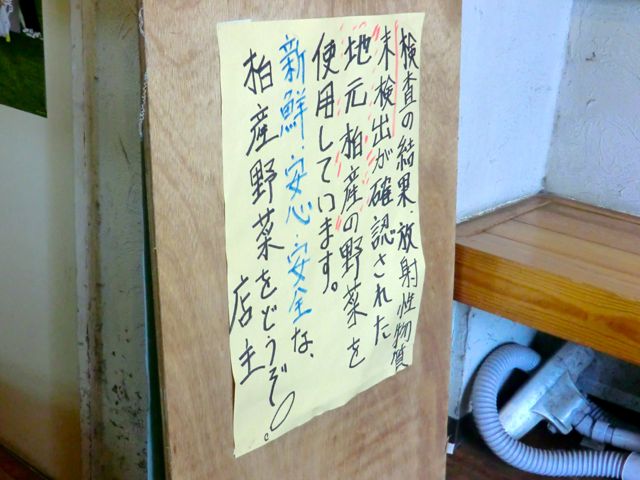 検査の結果、放射性物質
未検出が確認された
地元柏産の野菜を
使用しています。
新鮮・安心・安全な、
柏産野菜をどうぞ。
店主